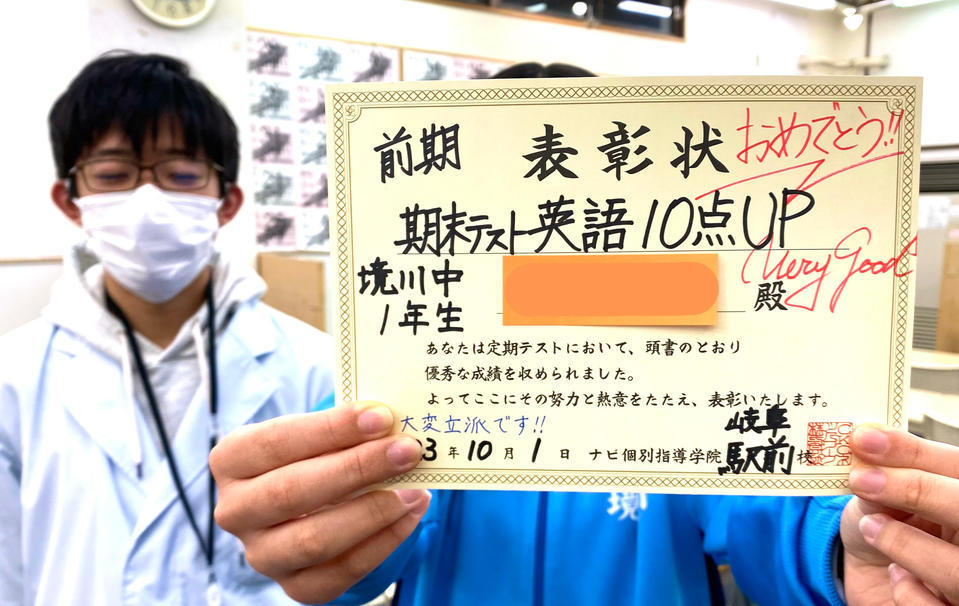 前期 表彰状 おめでとう!!
期末テスト英語10点UP
Very Good
境川中
1年生 殿
あなたは定期テストにおいて、頭書のとおり
優秀な成績を収められました。
よってここにその努力と熱意をたたえ、表彰いたします。
大変立派です!!
3年10月1日 ナビ個別指導学院 岐阜駅前校
境